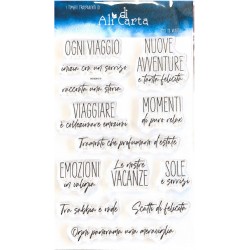 di
Ali Carta
OGNI VIAGGIO
inizia con un sorriso
racconta una storia
NUOVE
AVVENTURE
e tanta felicità
VIAGGIARE
è collezionare emozioni
MOMENTI
di puro relax
Tramonti che profumano d'estate
EMOZIONI
in valigia
Le nostre
VACANZE
SOLE
e sorrisi
Tra sabbia e onde
Scatti di felicità
Ogni panorama una meraviglia